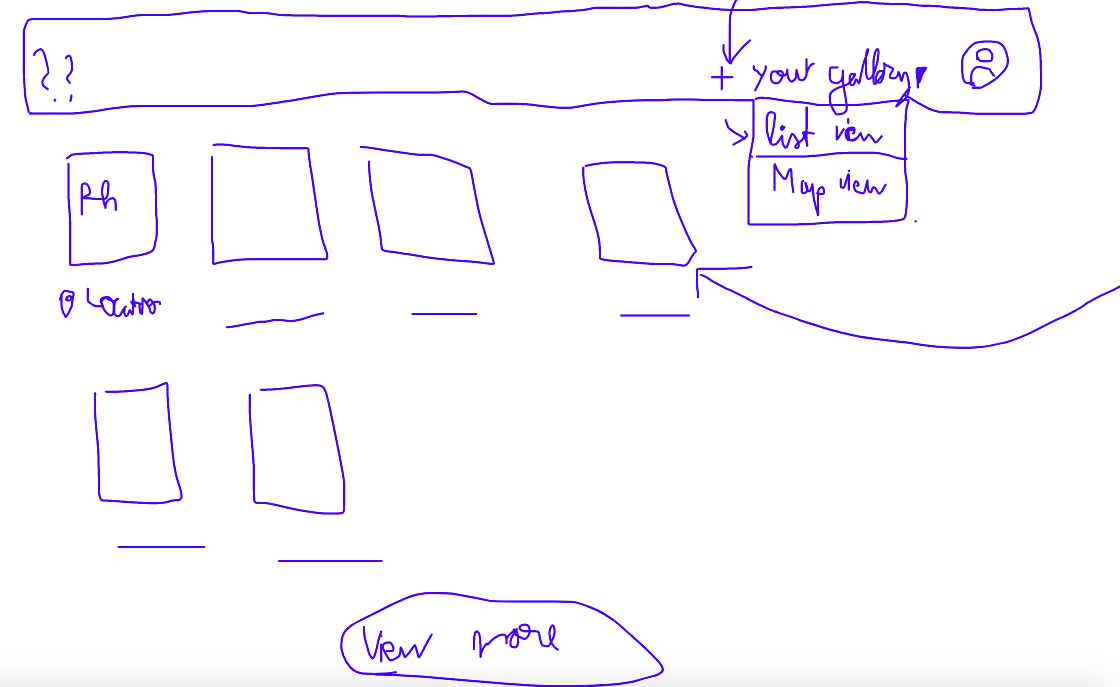 ??
+ your gallery
list view
Map view
Ph
Location
View more